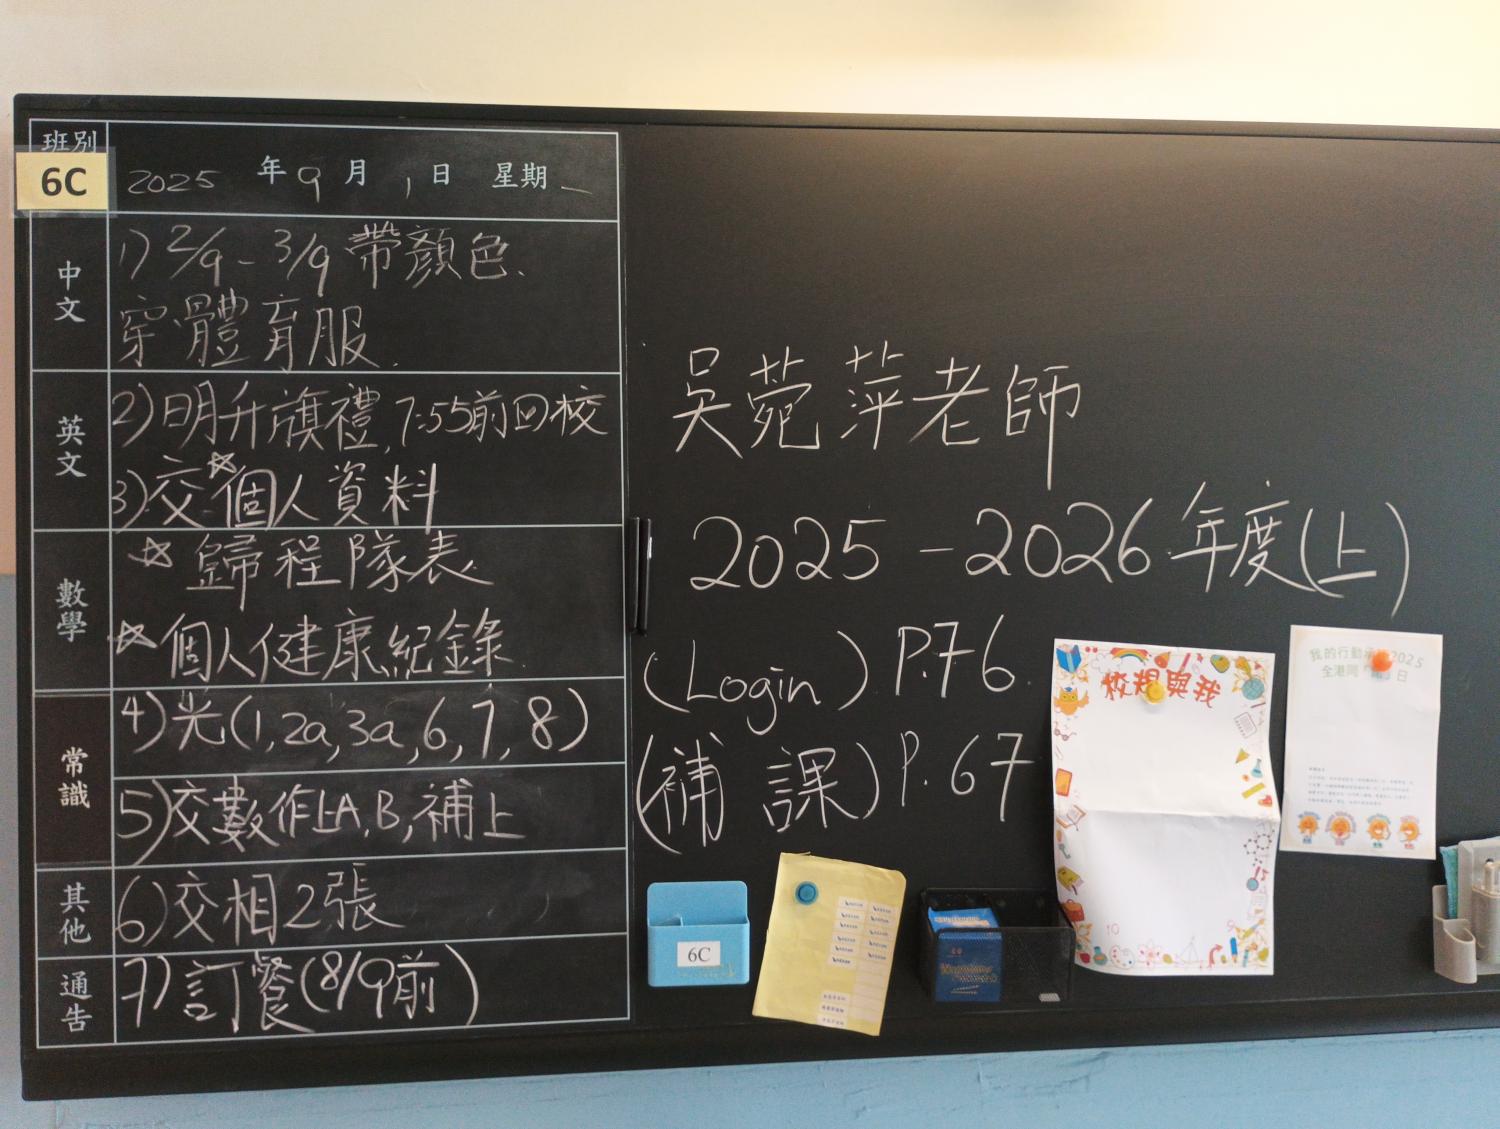 班別
6C
2025 年 9 月 1 日 星期一
中文
1) 2/9 - 3/9 帶顏色.
穿體育服.
英文
2) 明升旗禮, 7:55前回校
3) 交☆個人資料
數學
☆ 歸程隊表
☆ 個人健康紀錄
常識
4) 光(1, 2a, 3a, 6, 7, 8)
5) 交數作上A, B, 補上
其他
6) 交相2張
通告
7) 訂餐(8/9前)
吳菀萍老師
2025 - 2026 年度(上)
(Login) P.76
(補課) P.67
6C
校規與我
我的行動承諾2025
10
9